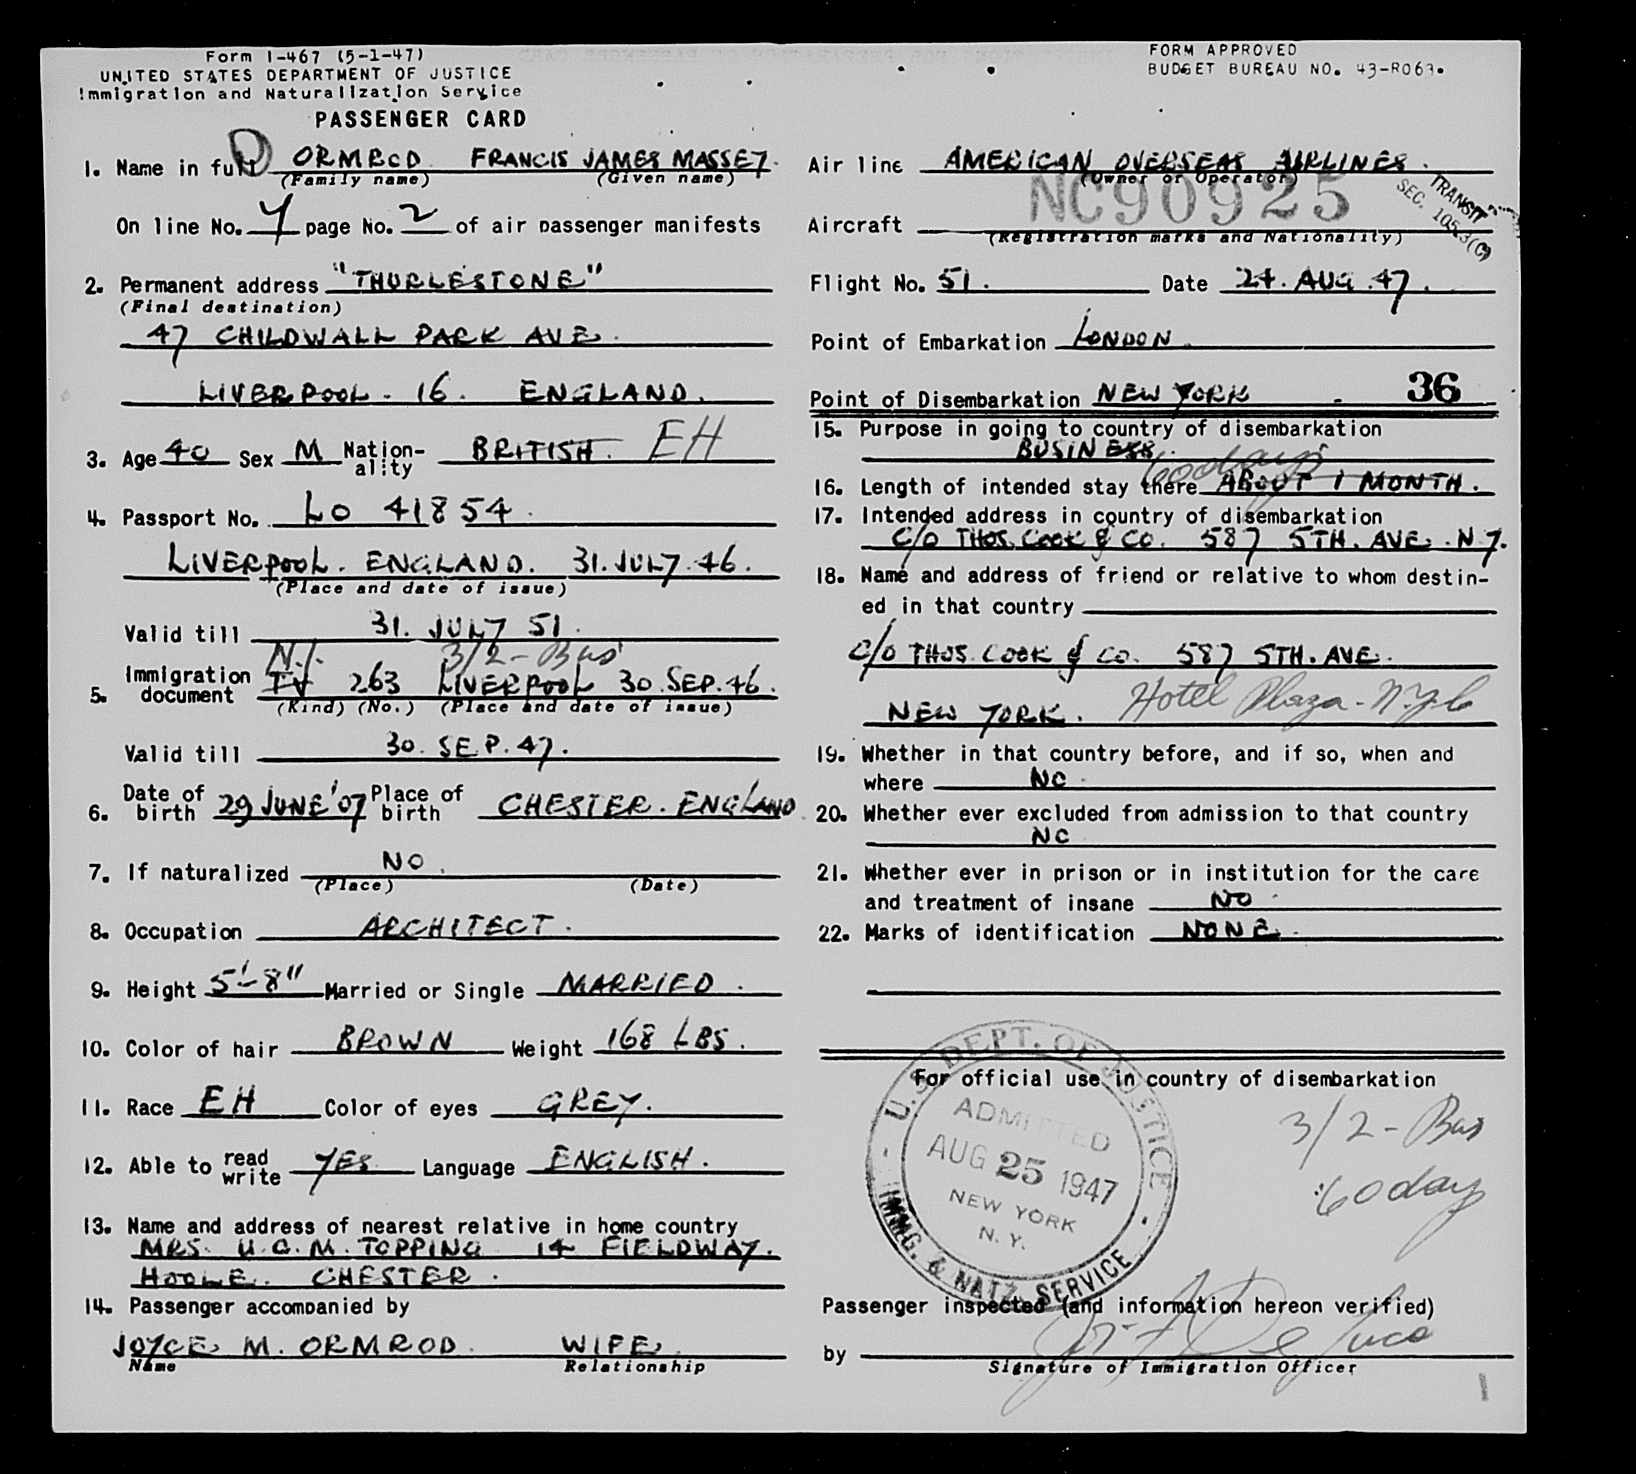 Form I-467 (5-1-47)
UNITED STATES DEPARTMENT OF JUSTICE
Immigration and Naturalization Service
PASSENGER CARD
FORM APPROVED
BUDGET BUREAU NO. 43-R063.
1. Name in full ORMROD FRANCIS JAMES MASSEY.
(Family name) (Given name)
On line No. 4 page No. 2 of air passenger manifests
2. Permanent address "THURLESTONE"
(Final destination)
47 CHILDWALL PARK AVE.
LIVERPOOL. 16. ENGLAND.
3. Age 40 Sex M Nation-ality BRITISH. EH
4. Passport No. LO 41854.
LIVERPOOL. ENGLAND. 31. JULY 46.
(Place and date of issue)
Valid till 31. JULY 51.
N.I. 3/2 - Bus
5. Immigration document TV 263 LIVERPOOL 30. SEP. 46.
(Kind) (No.) (Place and date of issue)
Valid till 30. SEP. 47.
6. Date of birth 29 JUNE '07 Place of birth CHESTER. ENGLAND
7. If naturalized NO.
(Place) (Date)
8. Occupation ARCHITECT.
9. Height 5'-8" Married or Single MARRIED.
10. Color of hair BROWN Weight 168 LBS.
11. Race EH Color of eyes GREY.
12. Able to read write YES Language ENGLISH.
13. Name and address of nearest relative in home country
MRS. U.G.M. TOPPING 14 FIELDWAY.
HOOLE. CHESTER.
14. Passenger accompanied by
JOYCE M. ORMROD. WIFE.
Name Relationship
Air line AMERICAN OVERSEAS AIRLINES.
(Owner or Operator)
TRANSIT
SEC. 105.3(C)
Aircraft NC90925
(Registration marks and Nationality)
Flight No. 51. Date 24. AUG. 47.
Point of Embarkation LONDON.
Point of Disembarkation NEW YORK 36
15. Purpose in going to country of disembarkation
BUSINESS.
60 days
16. Length of intended stay there ABOUT 1 MONTH.
17. Intended address in country of disembarkation
C/O THOS. COOK & CO. 587 5TH. AVE. N.Y.
18. Name and address of friend or relative to whom destin-
ed in that country
C/O THOS. COOK & CO. 587 5TH. AVE.
NEW YORK. Hotel Plaza - N.Y.C
19. Whether in that country before, and if so, when and
where NO
20. Whether ever excluded from admission to that country
NO
21. Whether ever in prison or in institution for the care
and treatment of insane NO
22. Marks of identification NONE.
For official use in country of disembarkation
U.S. DEPT. OF JUSTICE
ADMITTED
AUG 25 1947
NEW YORK
N. Y.
IMMG. & NATZ. SERVICE
3/2 - Bus
60 day
Passenger inspected (and information hereon verified)
by
Signature of Immigration Officer